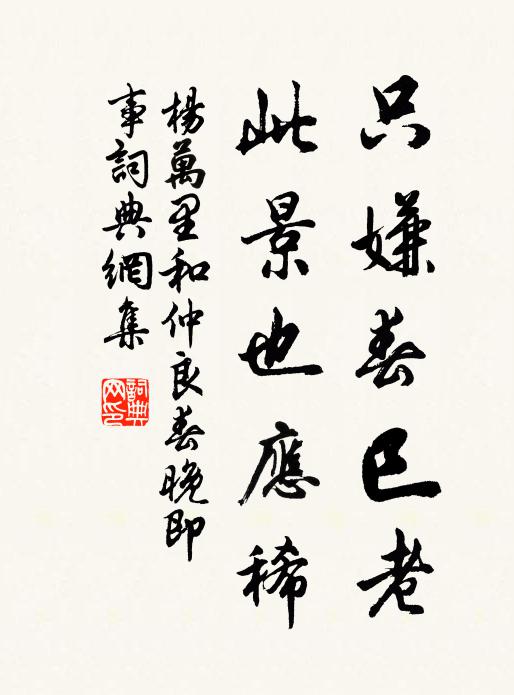 只嫌春已老
此景也應稀
楊萬里和仲良春晚即
事詞典網集
詞典網印